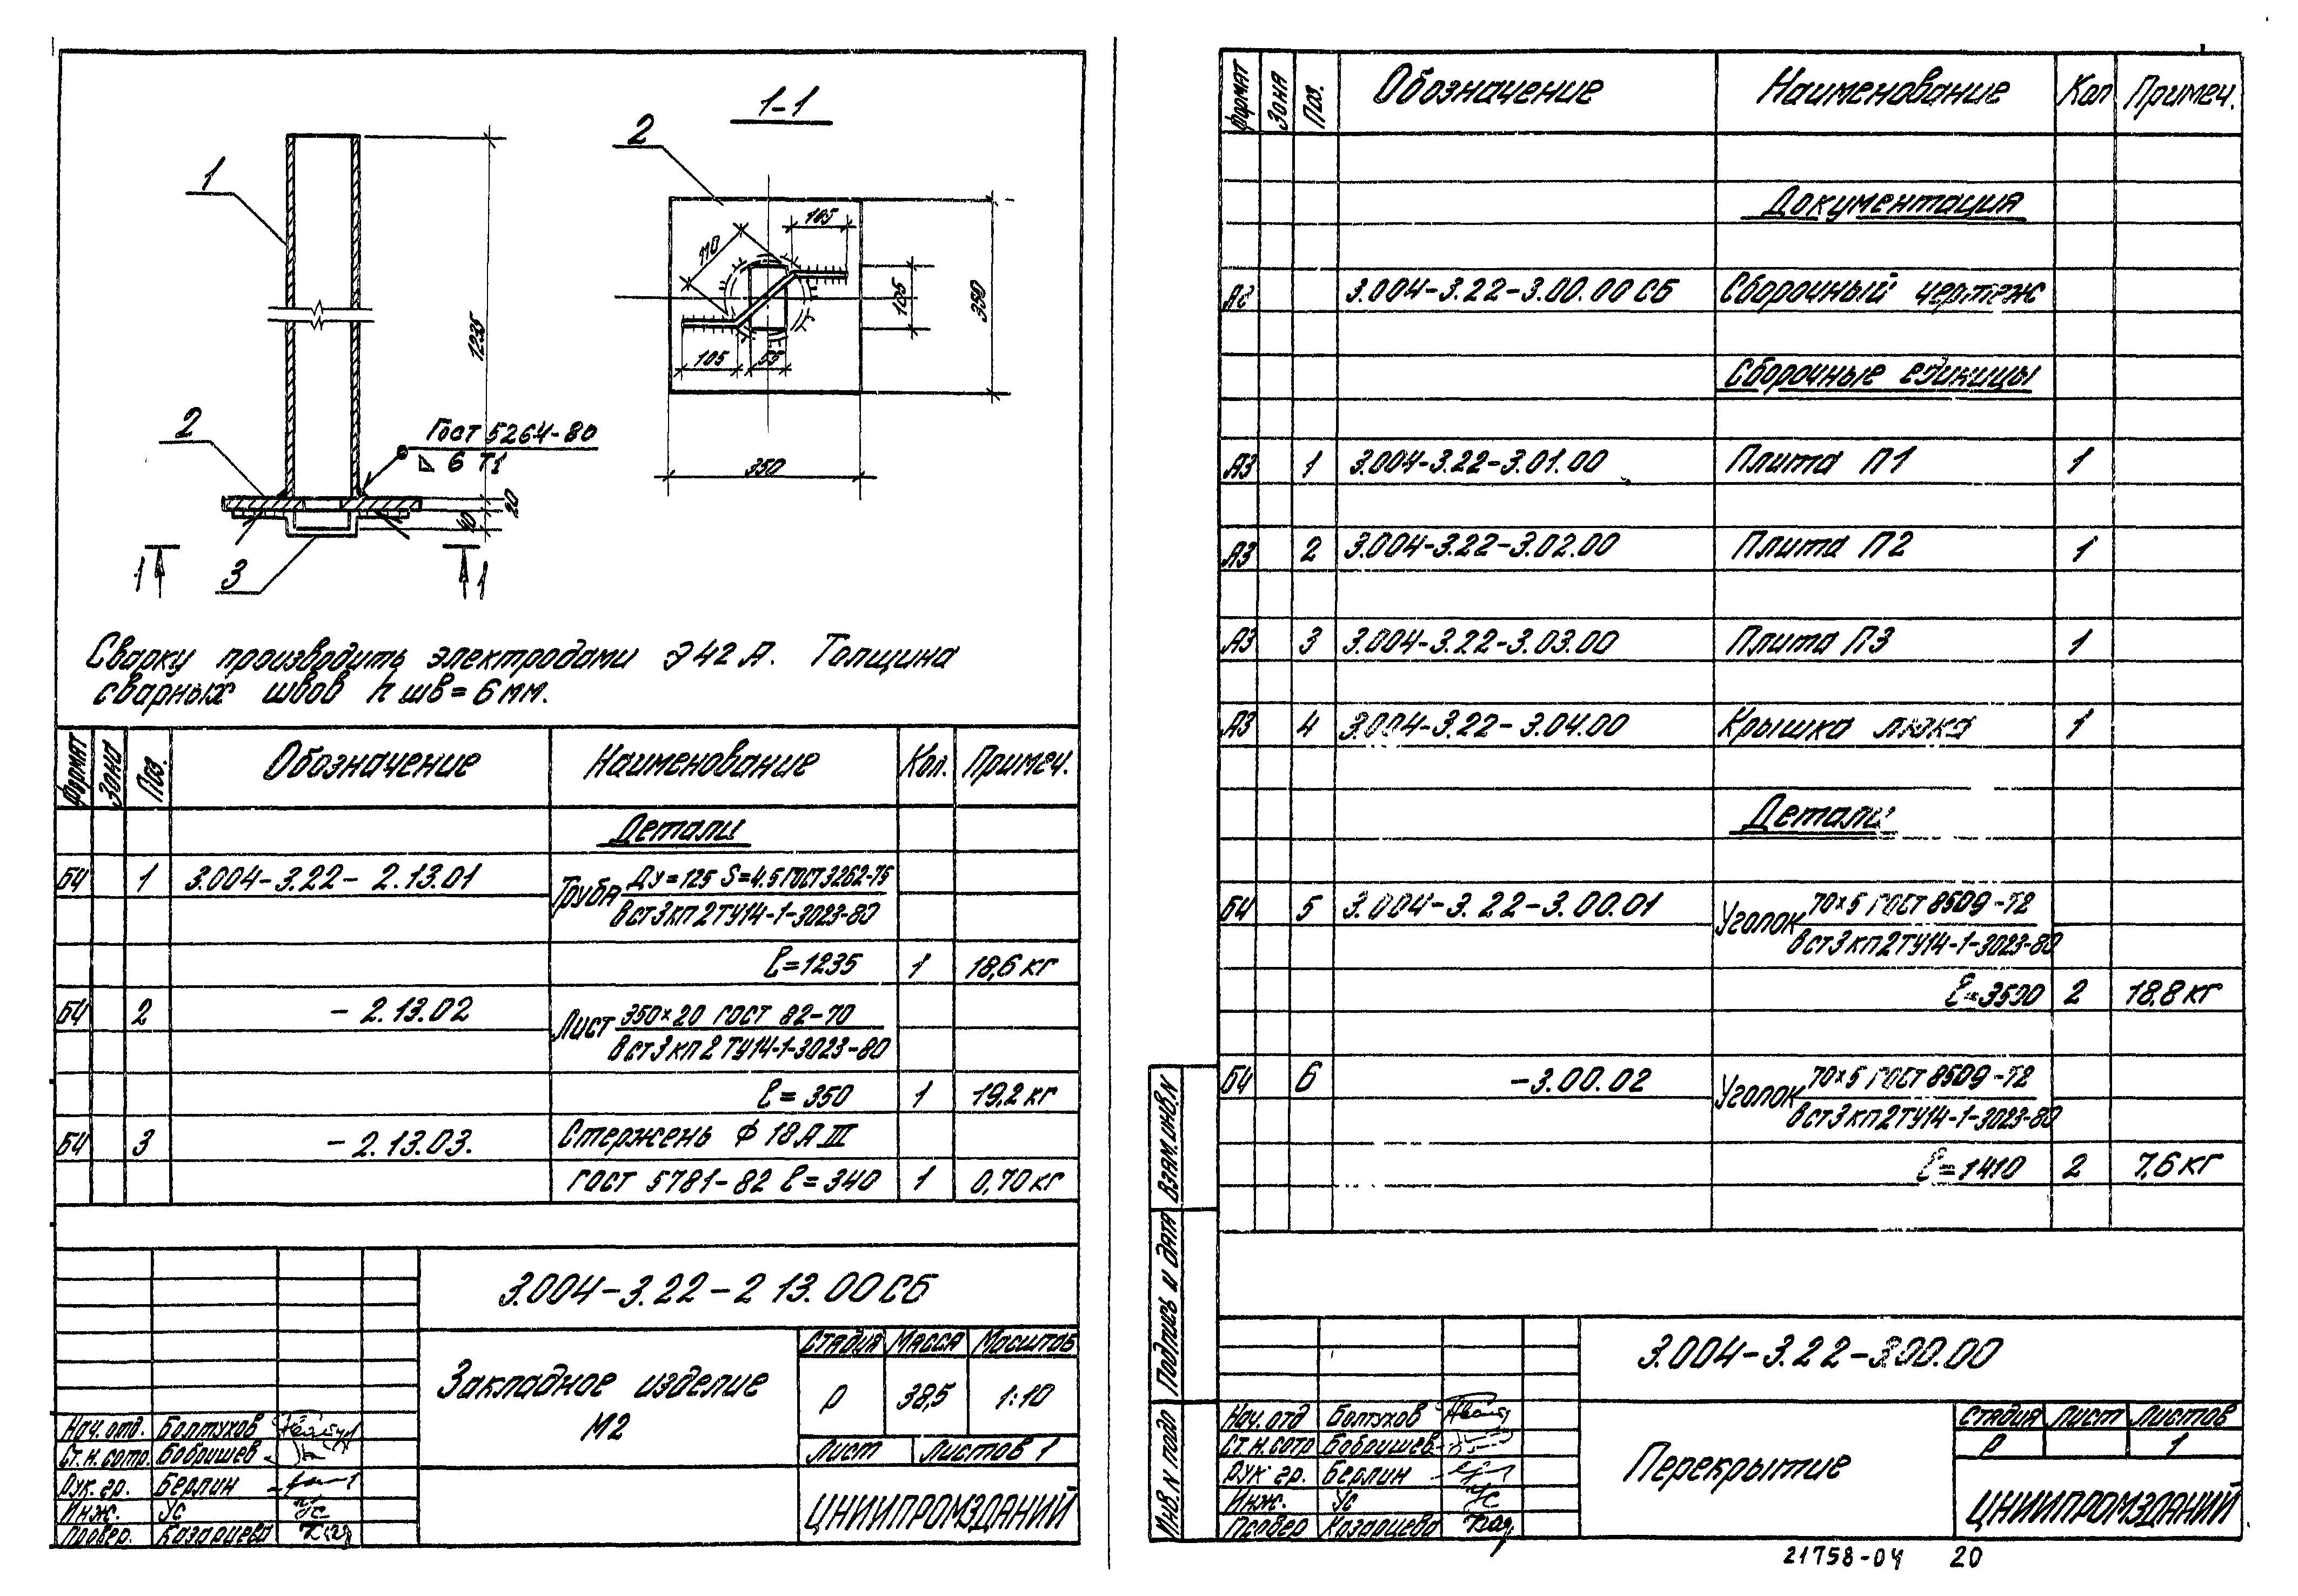 1-1
1
2
2
3
1
1
1235
20
40
ГОСТ 5264-80
6 Т1
110
105
105
350
105
55
350
Сварку производить электродами Э42А. Толщина
сварных швов h шв = 6 мм.
Формат Зона Поз. Обозначение Наименование Кол. Примеч.
Детали
БЧ 1 3.004-3.22-2.13.01 Труба Ду=125 S=4.5 ГОСТ 3262-75
ВСт3кп2 ТУ14-1-3023-80
ℓ=1235 1 18,6 кг
БЧ 2 -2.13.02 Лист 350×20 ГОСТ 82-70
ВСт3кп2 ТУ14-1-3023-80
ℓ=350 1 19,2 кг
БЧ 3 -2.13.03. Стержень Ф 18АIII
ГОСТ 5781-82 ℓ=340 1 0,70 кг
3.004-3.22-2 13.00СБ
Закладное изделие
М2
Стадия Масса Масштаб
Р 38,5 1:10
Лист Листов 1
ЦНИИПРОМЗДАНИЙ
Нач. отд. Болтухов
Ст. н. сотр. Бобришев
Рук. гр. Берлин
Инж. Ус
Провер. Казарцева
Формат Зона Поз. Обозначение Наименование Кол Примеч.
Документация
3.004-3.22-3.00.00СБ Сборочный чертеж
Сборочные единицы
А3 1 3.004-3.22-3.01.00 Плита П1 1
А3 2 3.004-3.22-3.02.00 Плита П2 1
А3 3 3.004-3.22-3.03.00 Плита П3 1
А3 4 3.004-3.22-3.04.00 Крышка люка 1
Детали
БЧ 5 3.004-3.22-3.00.01 Уголок 70×5 ГОСТ 8509-72
ВСт3кп2ТУ14-1-3023-80
ℓ=3500 2 18,8 кг
БЧ 6 -3.00.02 Уголок 70×5 ГОСТ 8509-72
ВСт3кп2ТУ14-1-3023-80
ℓ=1410 2 7,6 кг
Инв. N подл Подпись и дата Взам. инв. N
3.004-3.22-3.00.00
Перекрытие
Стадия Лист Листов
Р 1
ЦНИИПРОМЗДАНИЙ
Нач. отд Болтухов
Ст. н. сотр Бобришев
Рук гр. Берлин
Инж. Ус
Провер Казарцева
21758-04 20